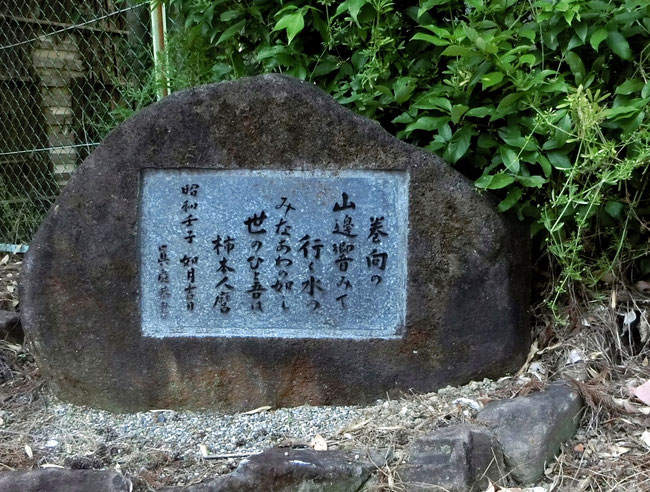 巻向の
山邊響みて
行く水の
みなあわの如し
世のひと吾は
柿本人麿
昭和壬子 如月吉日